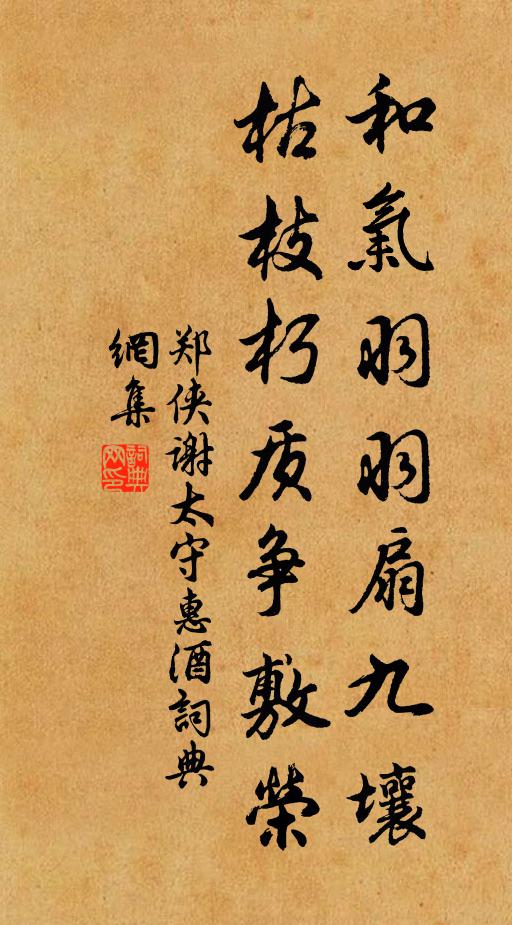 和氣羽羽扇九壤
枯枝朽质争敷榮
郑侠谢太守惠酒詞典
網集
詞典
网印